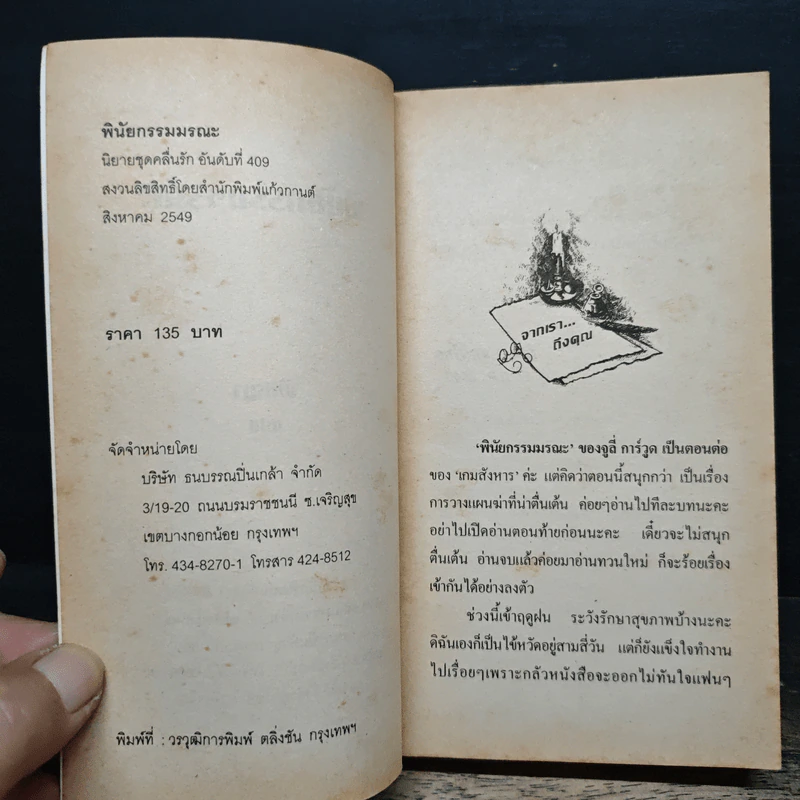 พินัยกรรมมรณะ
นิยายชุดคลื่นรัก อันดับที่ 409
สงวนลิขสิทธิ์โดยสำนักพิมพ์แก้วกานต์
สิงหาคม 2549
ราคา 135 บาท
จัดจำหน่ายโดย
บริษัท ธนบรรณปิ่นเกล้า จำกัด
3/19-20 ถนนบรมราชชนนี ซ.เจริญสุข
เขตบางกอกน้อย กรุงเทพฯ
โทร. 434-8270-1 โทรสาร 424-8512
พิมพ์ที่ : วรวุฒิการพิมพ์ ตลิ่งชัน กรุงเทพฯ
จากเรา...
ถึงคุณ
'พินัยกรรมมรณะ' ของจูลี่ การ์วูด เป็นตอนต่อ
ของ 'เกมสังหาร' ค่ะ แต่คิดว่าตอนนี้สนุกกว่า เป็นเรื่อง
การวางแผนฆ่าที่น่าตื่นเต้น ค่อยๆอ่านไปทีละบทนะคะ
อย่าไปเปิดอ่านตอนท้ายก่อนนะคะ เดี๋ยวจะไม่สนุก
ตื่นเต้น อ่านจบแล้วค่อยมาอ่านทวนใหม่ ก็จะร้อยเรื่อง
เข้ากันได้อย่างลงตัว
ช่วงนี้เข้าฤดูฝน ระวังรักษาสุขภาพบ้างนะคะ
ดิฉันเองก็เป็นไข้หวัดอยู่สามสี่วัน แต่ก็ยังแข็งใจทำงาน
ไปเรื่อยๆเพราะกลัวหนังสือจะออกไม่ทันใจแฟนๆ